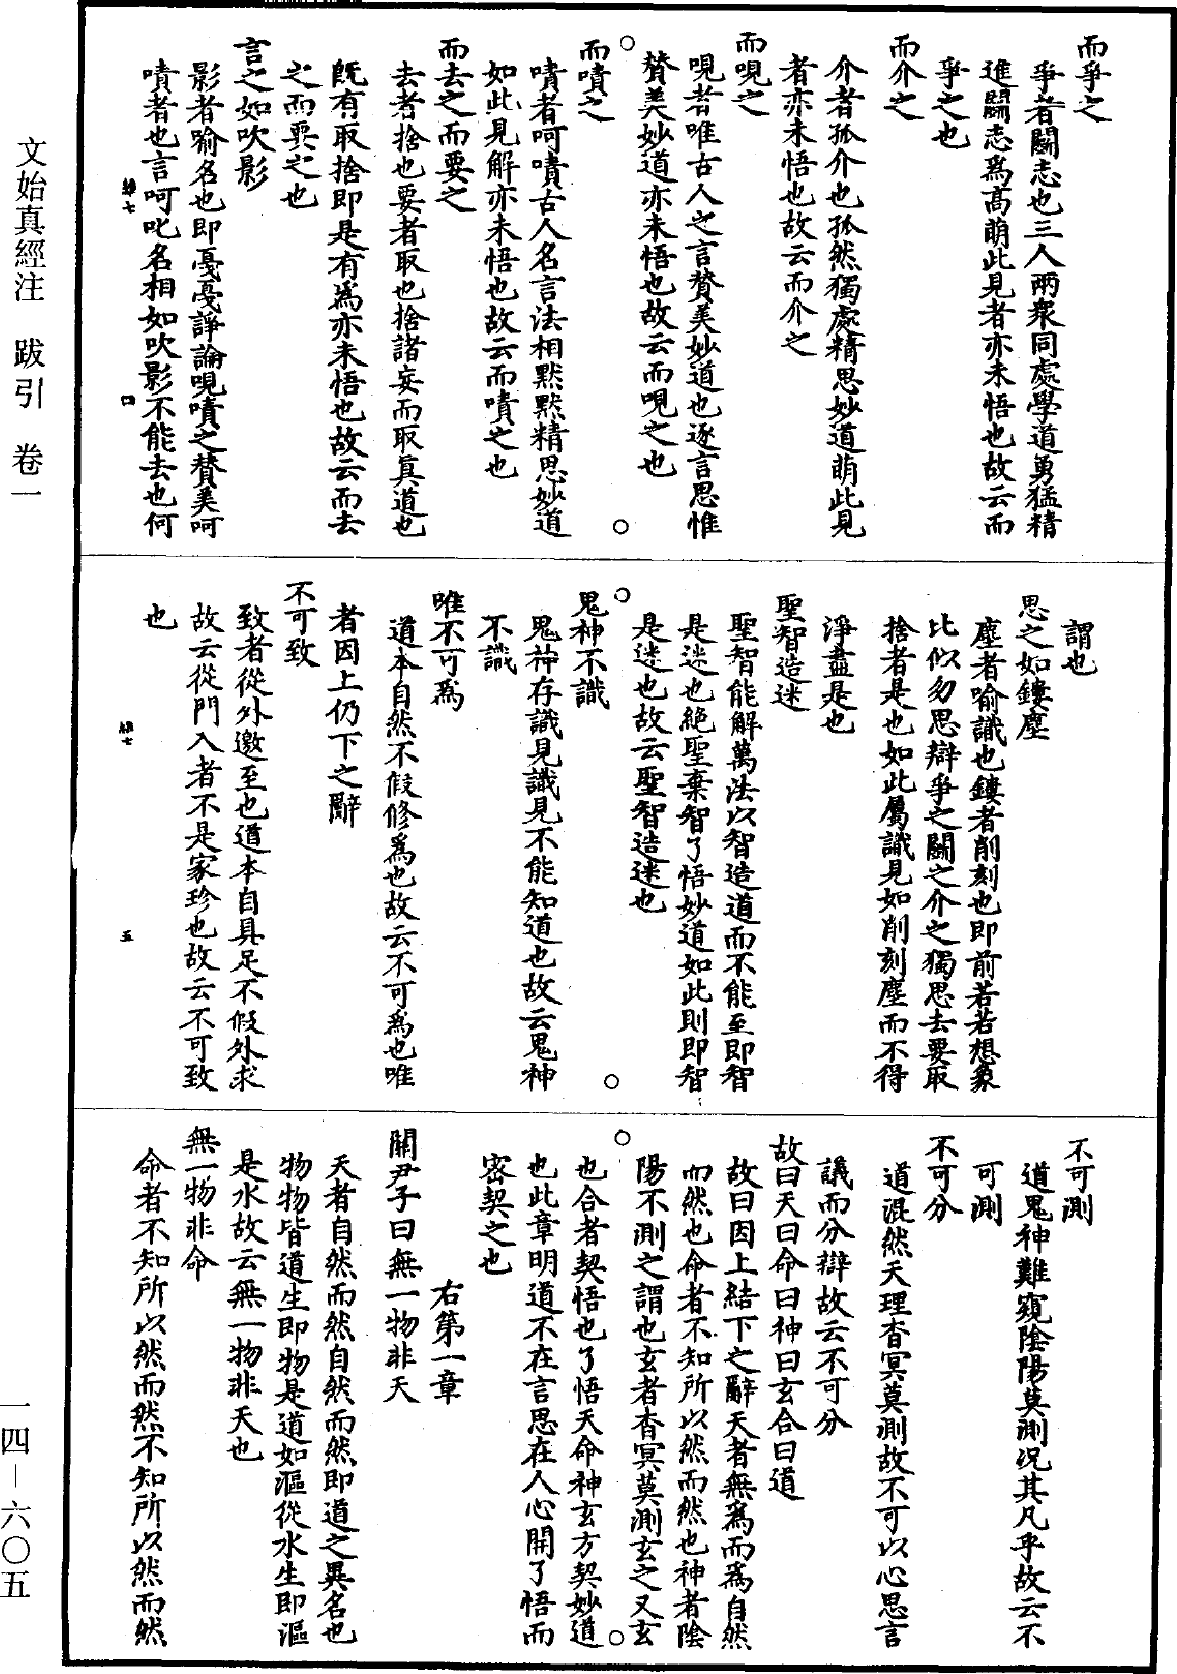 而爭之
爭者鬬志也三人兩衆同處學道勇猛精
進鬬志爲高萌此見者亦未悟也故云而
爭之也
而介之
介者孤介也孤然獨處精思妙道萌此見
者亦未悟也故云而介之
而哯之
哯者唯古人之言賛美妙道也逐言思惟
賛美妙道亦未悟也故云而哯之也
而嘖之
嘖者呵嘖古人名言法相默默精思妙道
如此見解亦未悟也故云而嘖之也
而去之而要之
去者捨也要者取也捨諸妄而取眞道也
旣有取捨即是有爲亦未悟也故云而去
之而要之也
言之如吹影
影者喻名也即戞戞諍論哯嘖之賛美呵
嘖者也言呵叱名相如吹影不能去也何
謂也
思之如鏤塵
塵者喻識也鏤者削刻也即前若若想象
比似勿思辯爭之鬬之介之獨思去要取
捨者是也如此屬識見如削刻塵而不得
淨盡是也
聖智造迷
聖智能解萬法以智造道而不能至即智
是迷也絶聖棄智了悟妙道如此則即智
是迷也故云聖智造迷也
鬼神不識
鬼神存識見識見不能知道也故云鬼神
不識
唯不可爲
道本自然不假修爲也故云不可爲也唯
者因上仍下之辭
不可致
致者從外邀至也道本自具足不假外求
故云從門入者不是家珍也故云不可致
也
不可測
道鬼神難窺陰陽莫測况其凡乎故云不
可測
不可分
道混然天理杳冥莫測故不可以心思言
議而分辯故云不可分
故曰天曰命曰神曰玄合曰道
故曰因上結下之辭天者無爲而爲自然
而然也命者不知所以然而然也神者陰
陽不測之謂也玄者杳冥莫測玄之又玄
也合者契悟也了悟天命神玄方契妙道
也此章明道不在言思在人心開了悟而
密契之也
右第一章
關尹子曰無一物非天
天者自然而然自然而然即道之異名也
物物皆道生即物是道如漚從水生即漚
是水故云無一物非天也
無一物非命
命者不知所以然而然不知所以然而然
文始真經注　跋引　卷一
一四—六〇五